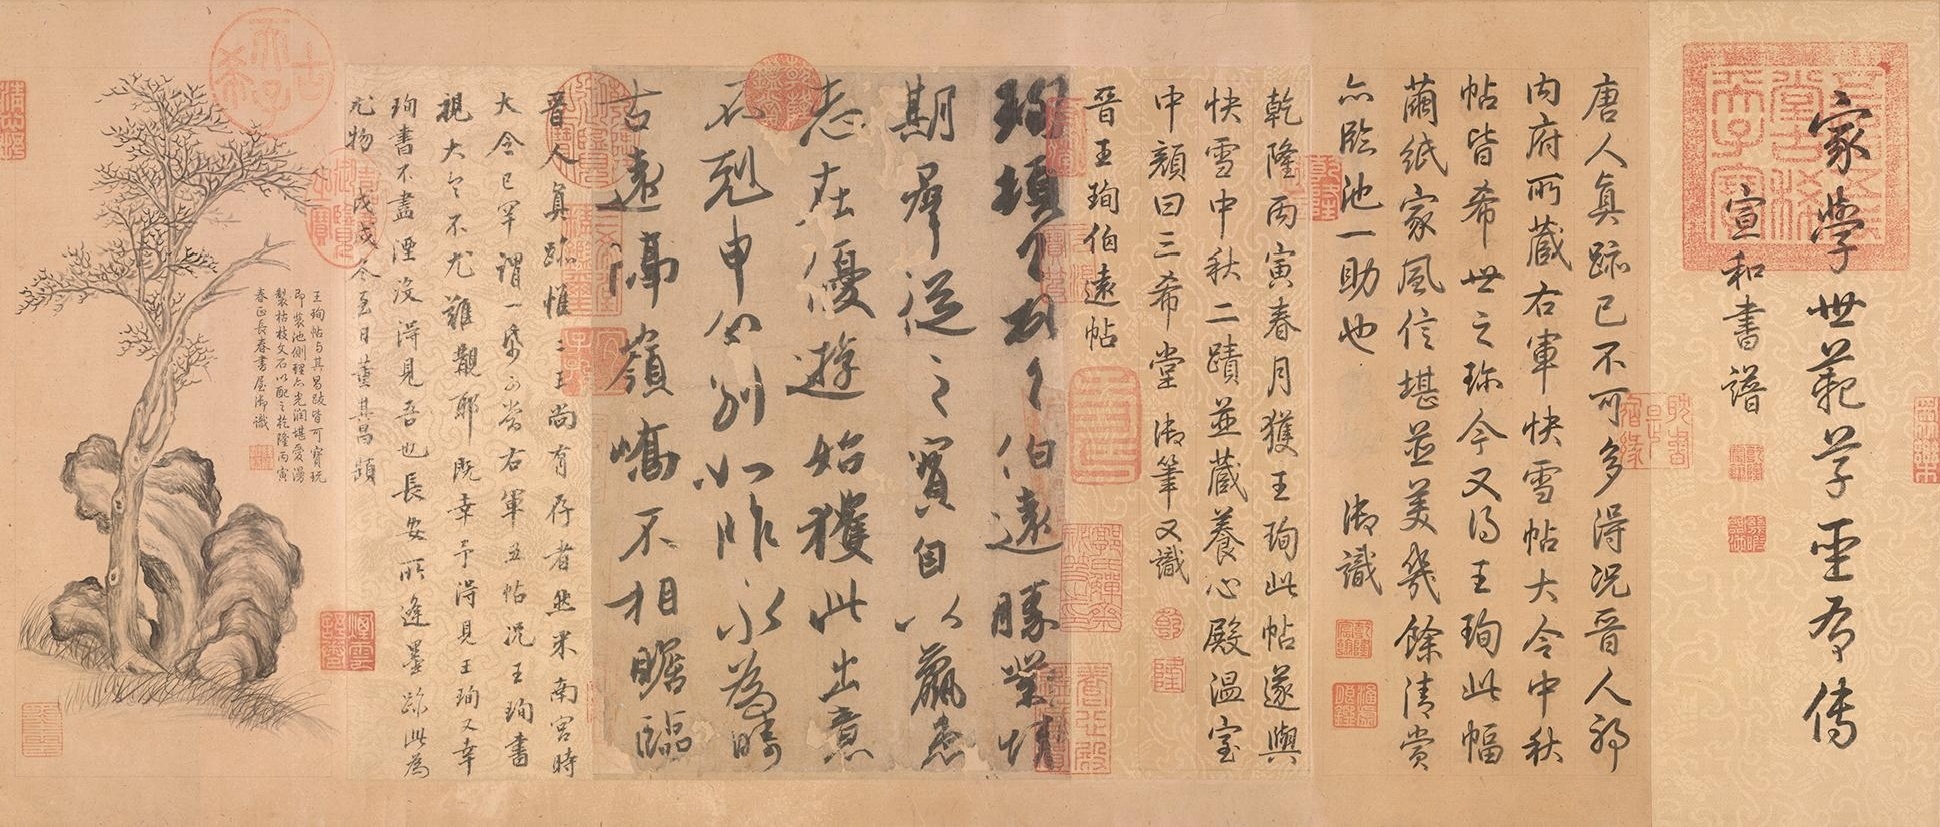 家學世範草聖有傳
宣和書譜
唐人真跡已不可多得況晉人耶
內府所藏右軍快雪帖大令中秋
帖皆希世之珍今又得王珣此幅
繭紙家風信堪並美幾餘清賞
亦臨池一助也 御識
乾隆丙寅春月獲王珣此帖遂與
快雪中秋二蹟並藏養心殿溫室
中顏曰三希堂 御筆又識
晉王珣伯遠帖
珣頓首頓首伯遠勝業情
期群從之寶自以羸患
志在優遊始獲此出意
不剋申分別如昨永為疇
古遠隔嶺嶠不相瞻臨
晉人真跡惟二王尚有存者然米南宮時
大令已罕謂一紙可當右軍五帖況王珣書
視大令不尤難覯耶既幸予得見王珣又幸
珣書不盡湮沒得見吾也長安所逢墨跡此為
尤物 戊戌冬至日董其昌題
王珣帖與其昌跋皆可寶玩
即裝池側理亦光潤堪愛漫
製枯枝文石以配之乾隆丙寅
春正長春書屋御識
古希天子